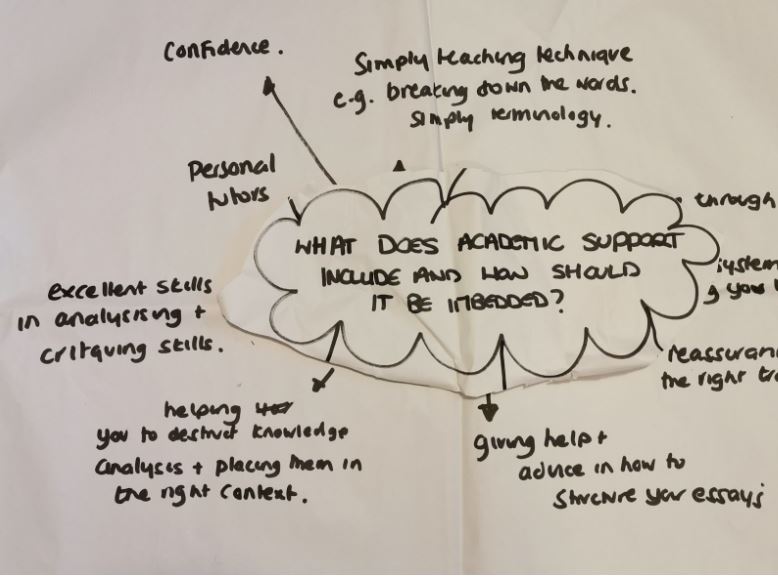 Confidence.
Simply teaching technique
e.g. breaking down the words.
simply terminology.
personal
tutors
through
WHAT DOES ACADEMIC SUPPORT
INCLUDE AND HOW SHOULD
IT BE IMBEDDED?
system
you
excellent skills
in analysising +
critquing skills.
the right
helping
you to destruct knowledge
analysis + placing them in
the right context.
giving help +
advice in how to
structure your essays